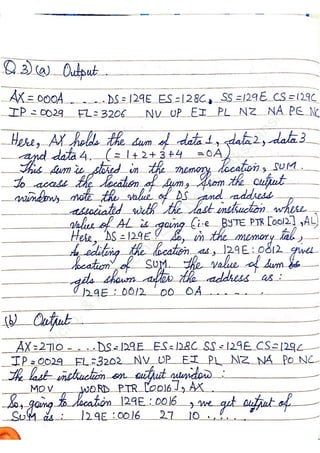 Q 3) (a) Output.
AX = 000A . . . . . DS = 129E ES = 128C, SS = 129E CS = 129C
IP = 0029 FL = 3206 NV UP EI PL NZ NA PE NC
Here, AX holds the sum of data 1, data 2, data 3
and data 4. (= 1+2+3+4 = 0A)
This sum is stored in the memory location, SUM.
To access the location of sum, from the output
window, note the value of DS and address
associated with the last instruction where
value of AL is going (i.e BYTE PTR [0012], AL)
Here, DS = 129E So, in the memory tab,
by editing the location as, 129E : 0012 gives
location of SUM. The value of sum
gets shown after the address as :
129E : 0012 00 0A . . . . .
(b) Output.
AX = 2710 - . . . DS = 129E ES = 128C SS = 129E CS = 129C
IP = 0029 FL = 3202 NV UP EI PL NZ NA PO NC
The last instruction on output window :
MOV WORD PTR [0016], AX.
So, going to location 129E : 0016, we get output of
SUM as : 129E : 0016 27 10 . . . . . .